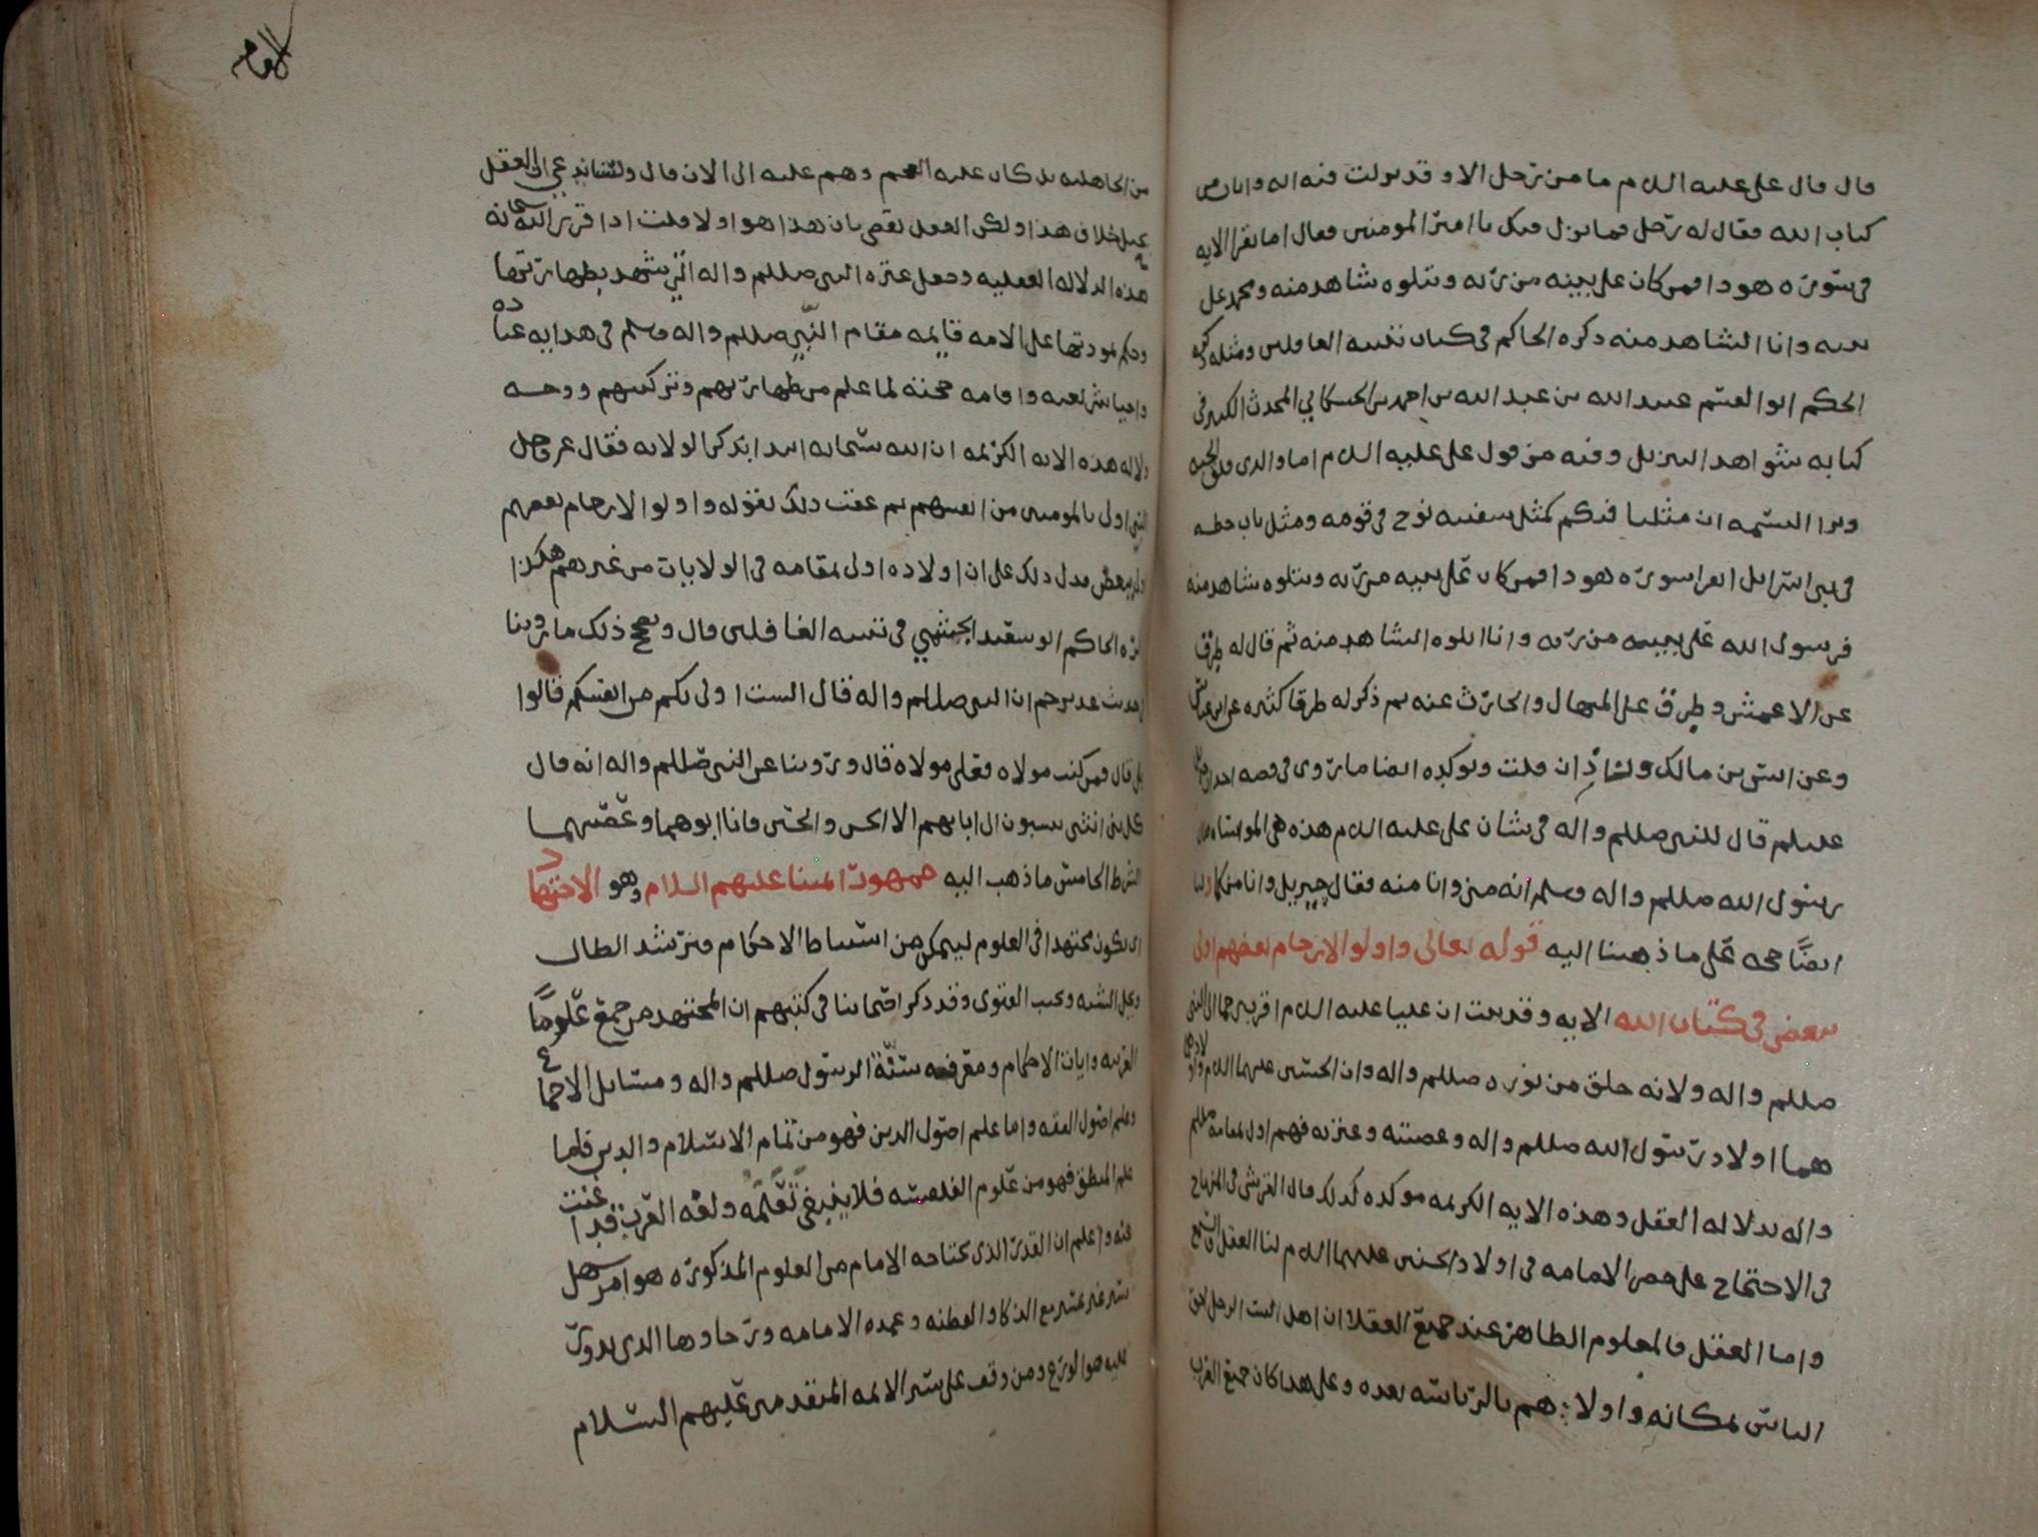 قال قال علي عليه السلام ما من رجل الا وقد نزلت فيه آية وايتان من
كتاب الله فقال له رجل فما نزل فيك يا امير المومنين فقال اما تقرا الايه
في سورة هود افمن كان على بينه من ربه ويتلوه شاهد منه ومحمد على
بينه وانا الشاهد منه ذكره الحاكم في كتاب تنبيه الغافلين ومثله ذكره
الحكم ابو القسم عبيد الله بن عبد الله بن احمد بن الحسكاني المحدث الكبير في
كتابه شواهد التنزيل وفيه من قول علي عليه السلام اما والذي فلق الحبه
وبرا النسمه ان مثلنا فيكم كمثل سفينه نوح في قومه ومثل باب حطه
في بني اسرائل اتقرا سورة هود افمن كان على بينه من ربه ويتلوه شاهد منه
فرسول الله على بينه من ربه وانا اتلوه الشاهد منه ثم قال له طرق
عن الاعمش وطرق على المنهال والحارث عنه ثم ذكر له طرقا كثيره عن ابن عباس
وعن انس بن مالك وزاذان قلت ويوكده ايضا ما روي في قصه احد ان
قال للنبي صللم واله في شان علي عليه السلام هذه هي المواساه فقال
رسول الله صللم واله وسلم انه مني وانا منه فقال جبريل وانا منكما ولنا
ايضًا حجه على ما ذهبنا اليه قوله تعالى واولوا الارحام بعضهم اولى
ببعض في كتاب الله الايه وقد ثبت ان عليا عليه السلام اقرب رحما الى النبي
صللم واله ولانه خلق من نوره صللم واله وان الحسنين عليهما السلام واولادهما
هما اولاد رسول الله صللم واله وعصبته وعترته فهم اولى بمقامه صللم
واله بدلاله العقل وهذه الايه الكريمه موكده لذلك قال القرشي في المنهاج
في الاحتجاج على حصر الامامه في اولاد الحسنين عليهما السلام لنا العقل والسمع
واما العقل فالمعلوم الظاهر عند جميع العقلا ان اهل البيت الرجل احق
الناس بمكانه واولاهم بالرئاسه بعده وعلى هذا كان جميع العرب
الامام
من الجاهليه بل كان عليه العجم وهم عليه الى الان قال ولسنا ندعي ان العقل
يحيل خلاف هذا ولكن العقل يقضي بان هذا هو اولا قلت اذا قرر الله سبحانه
هذه الدلاله العقليه وجعل عتره النبي صللم واله التي شهد بطهارتها
وحكم بمودتها على الامه قايمه مقام النبي صللم واله وسلم في هدايه عباده
واحيا شريعته واقامه حجته لما علم من طهارتهم وتزكيتهم ووجه
دلاله هذه الايه الكريمه ان الله سبحانه ابتدا بذكر الولايه فقال عز وجل
النبي اولى بالمومنين من انفسهم ثم عقب ذلك بقوله واولوا الارحام بعضهم
اولى ببعض فدل ذلك على ان اولاده اولى بمقامه في الولايات من غيرهم هكذا
ذكره الحاكم ابو سعيد الجشمي في تنبيه الغافلين قال ويصحح ذلك ما روينا
في حديث غدير خم ان النبي صللم واله قال الست اولى بكم من انفسكم قالوا
بلى قال فمن كنت مولاه فعلي مولاه قال وروينا عن النبي صللم واله انه قال
كل بني انثى ينسبون الى ابايهم الا الحسن والحسين فانا ابوهما وعصبتهما
الشرط الخامس ما ذهب اليه جمهور ائمتنا عليهم السلام وهو الاجتهاد
اي يكون مجتهدا في العلوم ليتمكن من استنباط الاحكام ويرشد الطالب
ويحل الشبه ويجيب الفتوى وقد ذكر اصحابنا في كتبهم ان المجتهد من جمع علومًا
العربيه وايات الاحكام ومعرفه سنّة الرسول صللم واله ومسايل الاجماع
وعلم اصول الفقه واما علم اصول الدين فهو من تمام الاسلام والدين فاما
علم المنطق فهو من علوم الفلاسفه فلا ينبغي تعلمه ولغه العرب قد اغنت
عنه واعلم ان القدر الذي يحتاجه الامام من العلوم المذكورة هو امر سهل
يسير غير عسير مع الذكا والفطنه وعمده الامامه ورحاوها الذي تدور
عليه هو الورع ومن وقف على سير الائمه المتقدمين عليهم السلام